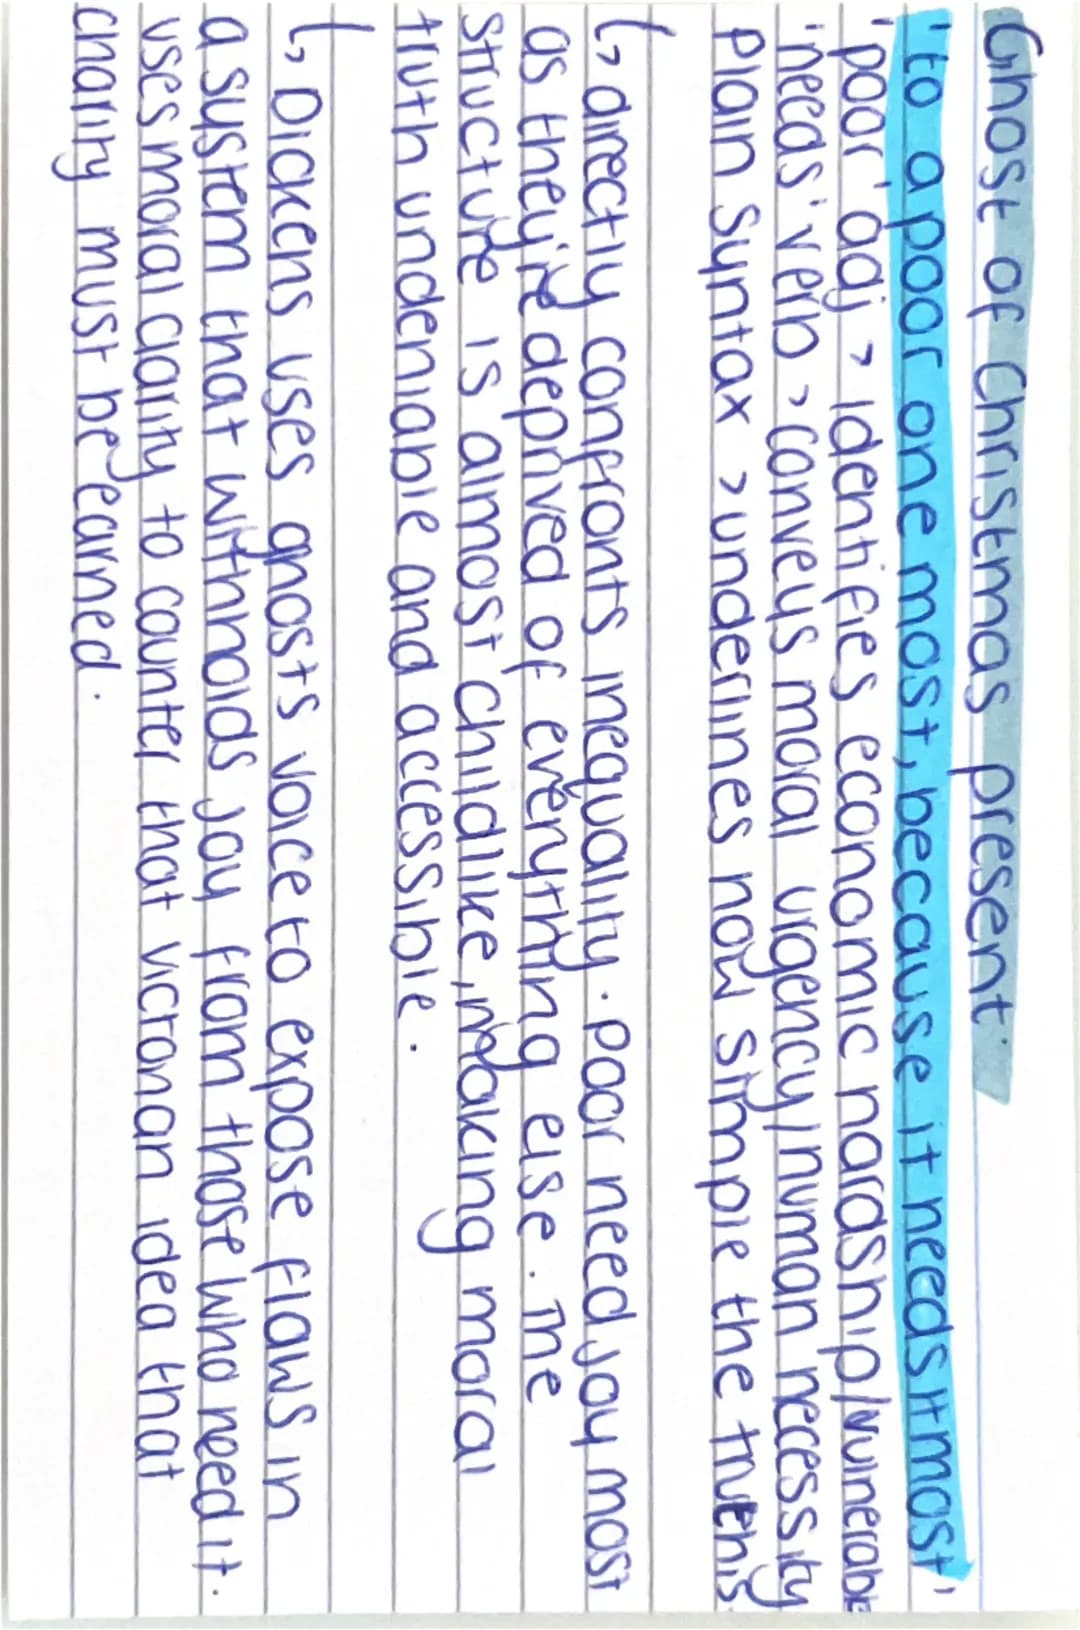 Ghost of Christmas present
'to a poor one most, because it needs it most'
'poor' adj > identifies economic hardship/vulnerable
'needs' verb > conveys moral urgency/human necessity
Plain syntax > underlines how simple the truth is
↳ directly confronts inequality. poor need joy most
as they're deprived of everything else. The
structure is almost childlike, making moral
truth undeniable and accessible.
↳ Dickens uses ghosts voice to expose flaws in
a system that withholds joy from those who need it.
uses moral clarity to counter that victorian idea that
charity must be earned.